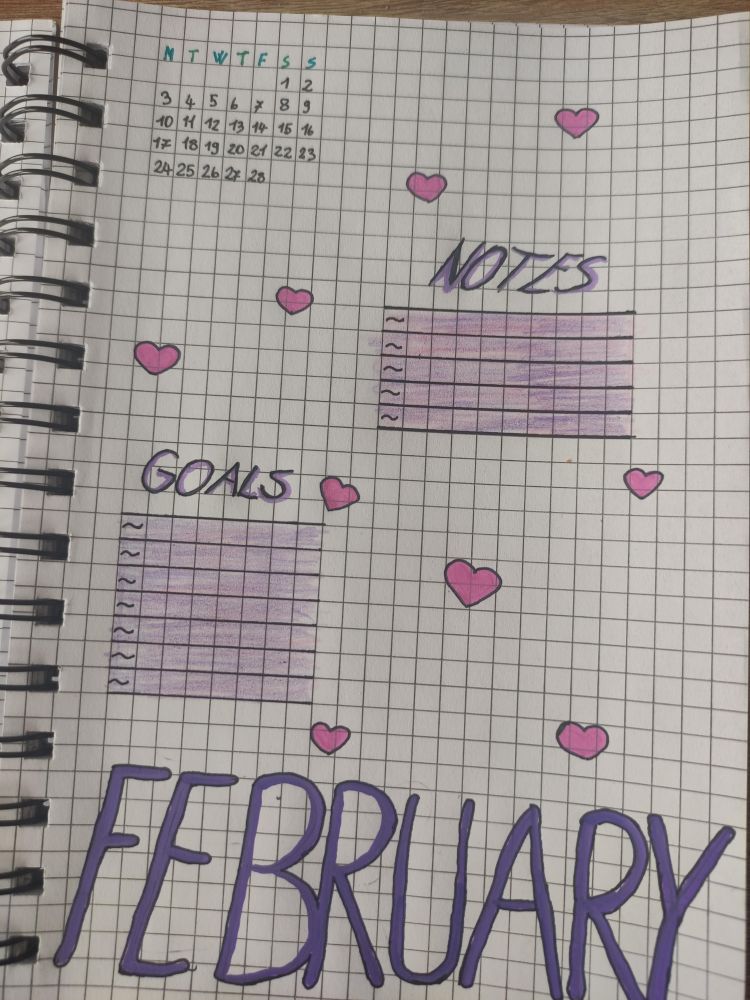 M T W T F S S
1 2
3 4 5 6 7 8 9
10 11 12 13 14 15 16
17 18 19 20 21 22 23
24 25 26 27 28
NOTES
~
~
~
~
~
GOALS
~
~
~
~
~
~
~
FEBRUARY